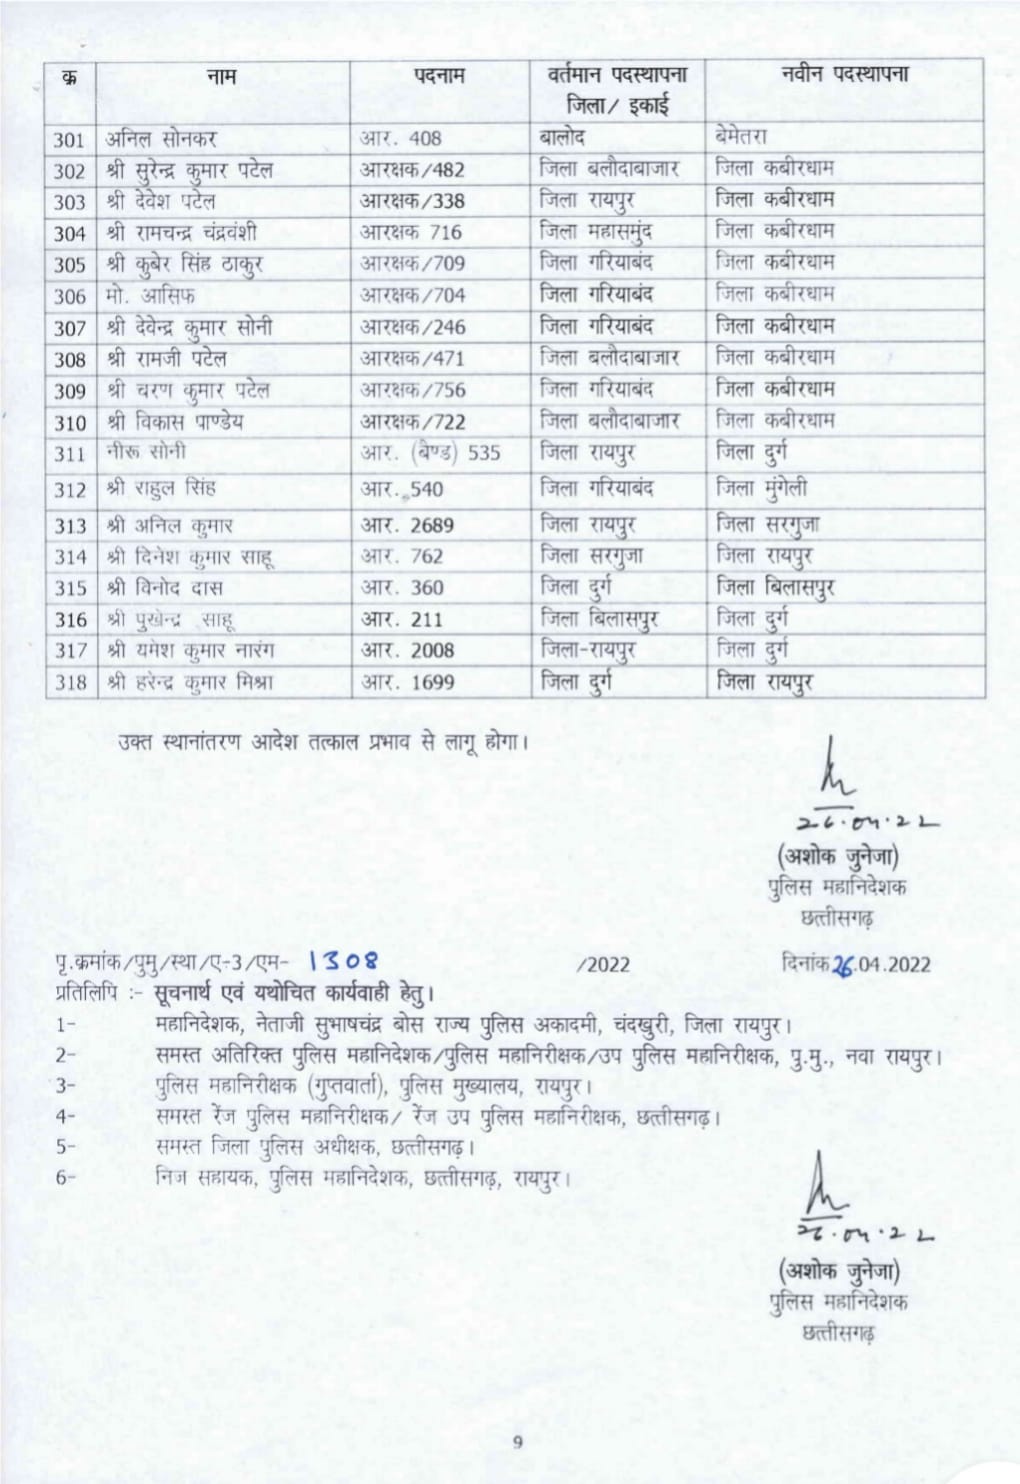 क्र नाम पदनाम वर्तमान पदस्थापना जिला/ इकाई नवीन पदस्थापना
301 अनिल सोनकर आर. 408 बालोद बेमेतरा
302 श्री सुरेन्द्र कुमार पटेल आरक्षक/482 जिला बलौदाबाजार जिला कबीरधाम
303 श्री देवेश पटेल आरक्षक/338 जिला रायपुर जिला कबीरधाम
304 श्री रामचन्द्र चंद्रवंशी आरक्षक 716 जिला महासमुंद जिला कबीरधाम
305 श्री कुबेर सिंह ठाकुर आरक्षक/709 जिला गरियाबंद जिला कबीरधाम
306 मो. आसिफ आरक्षक/704 जिला गरियाबंद जिला कबीरधाम
307 श्री देवेन्द्र कुमार सोनी आरक्षक/246 जिला गरियाबंद जिला कबीरधाम
308 श्री रामजी पटेल आरक्षक/471 जिला बलौदाबाजार जिला कबीरधाम
309 श्री चरण कुमार पटेल आरक्षक/756 जिला गरियाबंद जिला कबीरधाम
310 श्री विकास पाण्डेय आरक्षक/722 जिला बलौदाबाजार जिला कबीरधाम
311 नीरू सोनी आर. (बैण्ड) 535 जिला रायपुर जिला दुर्ग
312 श्री राहुल सिंह आर. 540 जिला गरियाबंद जिला मुंगेली
313 श्री अनिल कुमार आर. 2689 जिला रायपुर जिला सरगुजा
314 श्री दिनेश कुमार साहू आर. 762 जिला सरगुजा जिला रायपुर
315 श्री विनोद दास आर. 360 जिला दुर्ग जिला बिलासपुर
316 श्री पुखेन्द्र साहू आर. 211 जिला बिलासपुर जिला दुर्ग
317 श्री यमेश कुमार नारंग आर. 2008 जिला-रायपुर जिला दुर्ग
318 श्री हरेन्द्र कुमार मिश्रा आर. 1699 जिला दुर्ग जिला रायपुर
उक्त स्थानांतरण आदेश तत्काल प्रभाव से लागू होगा।
26.04.22
(अशोक जुनेजा)
पुलिस महानिदेशक
छत्तीसगढ़
पृ.क्रमांक/पुमु/स्था/ए-3/एम- 1308 /2022 दिनांक 26.04.2022
प्रतिलिपि :- सूचनार्थ एवं यथोचित कार्यवाही हेतु।
1- महानिदेशक, नेताजी सुभाषचंद्र बोस राज्य पुलिस अकादमी, चंदखुरी, जिला रायपुर।
2- समस्त अतिरिक्त पुलिस महानिदेशक/पुलिस महानिरीक्षक/उप पुलिस महानिरीक्षक, पु.मु., नवा रायपुर।
3- पुलिस महानिरीक्षक (गुप्तवार्ता), पुलिस मुख्यालय, रायपुर।
4- समस्त रेंज पुलिस महानिरीक्षक/ रेंज उप पुलिस महानिरीक्षक, छत्तीसगढ़।
5- समस्त जिला पुलिस अधीक्षक, छत्तीसगढ़।
6- निज सहायक, पुलिस महानिदेशक, छत्तीसगढ़, रायपुर।
26.04.22
(अशोक जुनेजा)
पुलिस महानिदेशक
छत्तीसगढ़
9